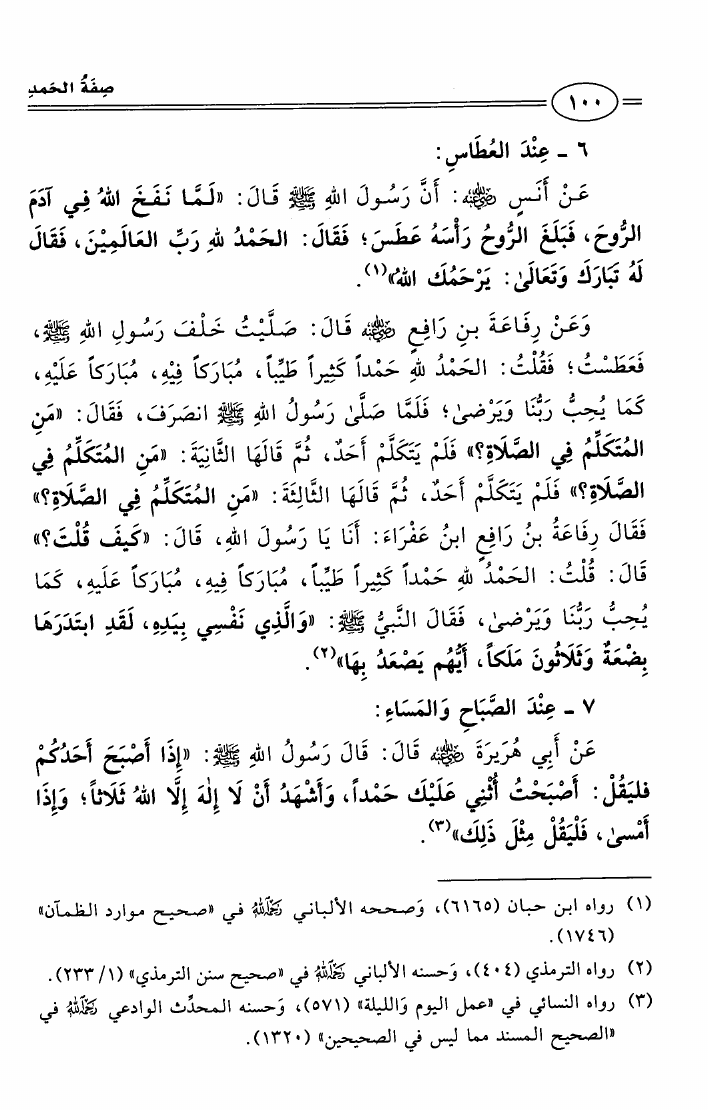 صِفَةُ الحَمدِ
١٠٠
٦ ـ عِنْدَ العُطَاسِ:
عَنْ أَنَسٍ رضي الله عنه: أَنَّ رَسُولَ اللهِ ﷺ قَالَ: «لَـمَّا نَفَخَ اللهُ فِي آدَمَ
الرُّوحَ، فَبَلَغَ الرُّوحُ رَأْسَهُ عَطَسَ؛ فَقَالَ: الحَمْدُ للهِ رَبِّ العَالَمِيْنَ، فَقَالَ
لَهُ تَبَارَكَ وَتَعَالَىٰ: يَرْحَمُكَ اللهُ»(١).
وَعَنْ رِفَاعَةَ بنِ رَافِعٍ رضي الله عنه قَالَ: صَلَّيْتُ خَلْفَ رَسُولِ اللهِ ﷺ،
فَعَطَسْتُ؛ فَقُلْتُ: الحَمْدُ للهِ حَمْداً كَثِيراً طَيِّباً، مُبَارَكاً فِيْهِ، مُبَارَكاً عَلَيْهِ،
كَمَا يُحِبُّ رَبُّنَا وَيَرْضىٰ؛ فَلَمَّا صَلَّىٰ رَسُولُ اللهِ ﷺ انصَرَفَ، فَقَالَ: «مَنِ
المُتَكَلِّمُ فِي الصَّلَاةِ؟» فَلَمْ يَتَكَلَّمْ أَحَدٌ، ثُمَّ قَالَهَا الثَّانِيَةَ: «مَنِ المُتَكَلِّمُ فِي
الصَّلَاةِ؟» فَلَمْ يَتَكَلَّمْ أَحَدٌ، ثُمَّ قَالَهَا الثَّالِثَةَ: «مَنِ المُتَكَلِّمُ فِي الصَّلَاةِ؟»
فَقَالَ رِفَاعَةُ بنُ رَافِعٍ ابنُ عَفْرَاءَ: أَنَا يَا رَسُولَ اللهِ، قَالَ: «كَيفَ قُلْتَ؟»
قَالَ: قُلْتُ: الحَمْدُ للهِ حَمْداً كَثِيراً طَيِّباً، مُبَارَكاً فِيهِ، مُبَارَكاً عَلَيهِ، كَمَا
يُحِبُّ رَبُّنَا وَيَرْضىٰ، فَقَالَ النَّبِيُّ ﷺ: «وَالَّذِي نَفْسِي بِيَدِهِ، لَقَدِ ابتَدَرَهَا
بِضْعَةٌ وَثَلَاثُونَ مَلَكاً، أَيُّهُم يَصْعَدُ بِهَا»(٢).
٧ ـ عِنْدَ الصَّبَاحِ وَالمَسَاءِ:
عَنْ أَبِي هُرَيرَةَ رضي الله عنه قَالَ: قَالَ رَسُولُ اللهِ ﷺ: «إِذَا أَصْبَحَ أَحَدُكُمْ
فليَقُلْ: أَصْبَحْتُ أُثْنِي عَلَيْكَ حَمْداً، وَأَشْهَدُ أَنْ لَا إِلٰهَ إِلَّا اللهُ ثَلَاثاً؛ وَإِذَا
أَمْسىٰ، فَلْيَقُلْ مِثْلَ ذَلِكَ»(٣).
(١) رواه ابن حبان (٦١٦٥)، وَصححه الألباني رحمه الله في «صحيح موارد الظمآن»
(١٧٤٦).
(٢) رواه الترمذي (٤٠٤)، وَحسنه الألباني رحمه الله في «صحيح سنن الترمذي» (١/ ٢٣٣).
(٣) رواه النسائي في «عمل اليوم وَالليلة» (٥٧١)، وَحسنه المحدِّث الوادعي رحمه الله في
«الصحيح المسند مما ليس في الصحيحين» (١٣٢٠).